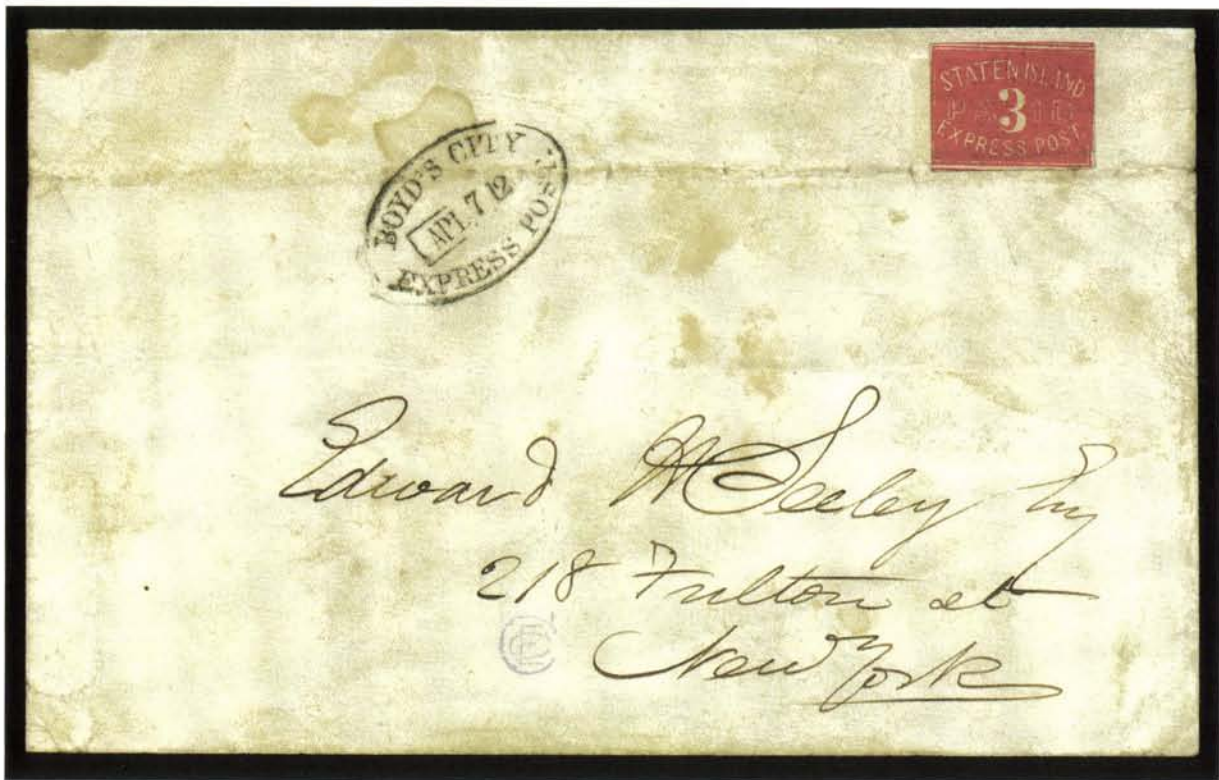 STATEN ISLAND
PAID
3
EXPRESS POST.
BOYD'S CITY
APL 7 12
EXPRESS POST
Edward H Seeley Esq
218 Fulton st
New York